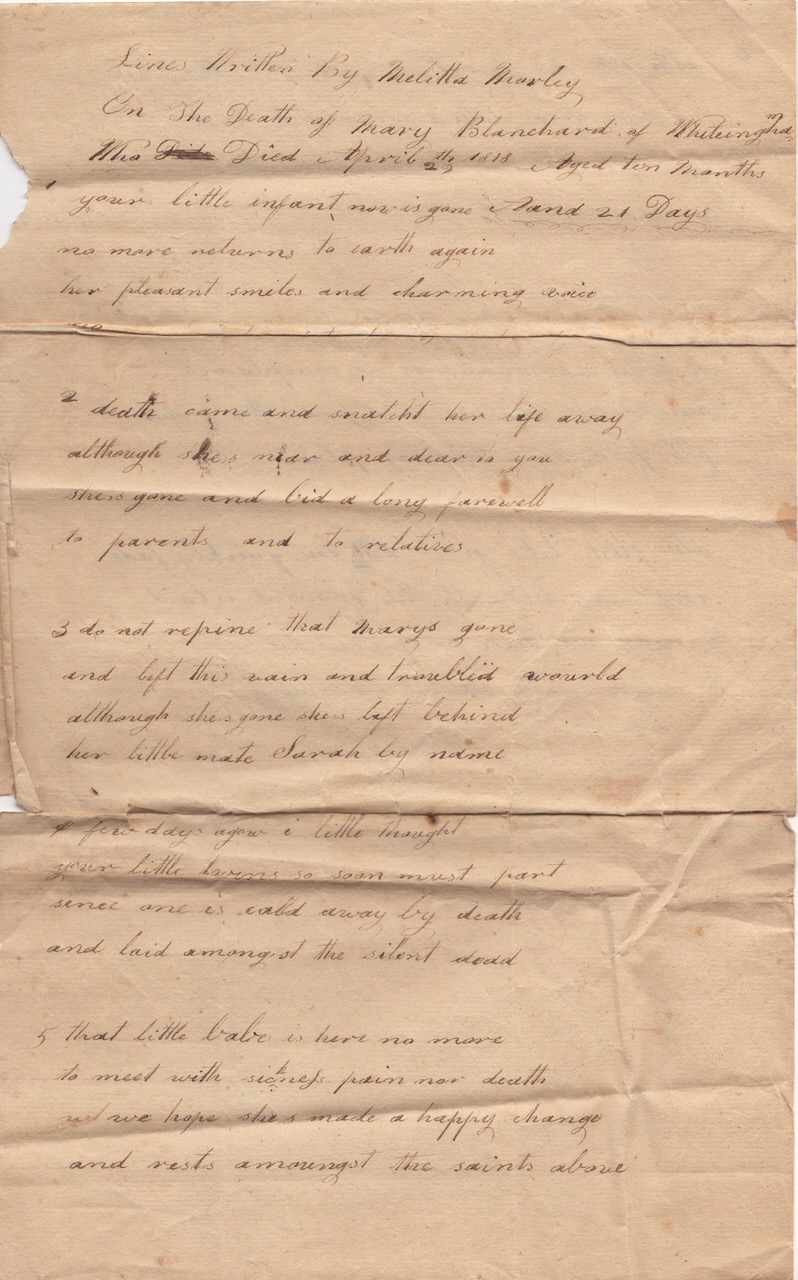 Lines Written By Melitta Morley
On The Death of Mary Blanchard of Whiteingham
Who Died April 2th 1818 Aged ten Months
1 your little infant now is gone Aand 21 Days
no more returns to earth again
her pleasant smiles and charming voice
2 death came and snatcht her life away
although shes near and dear to you
shes gone and bid a long farewell
to parents and to relatives
3 do not repine that Marys gone
and left this vain and troublid wourld
although shes gone shes left behind
her little mate Sarah by name
4 few days agow i little thought
your little twins so soon must part
since one is cald away by death
and laid amongst the silent dead
5 that little babe is here no more
to meet with sickness pain nor death
we hope shes made a happy change
and rests amoungst the saints above